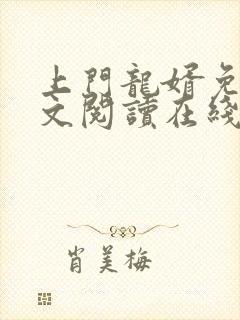 上門龍婿免
文閱讀在綫
肖美梅